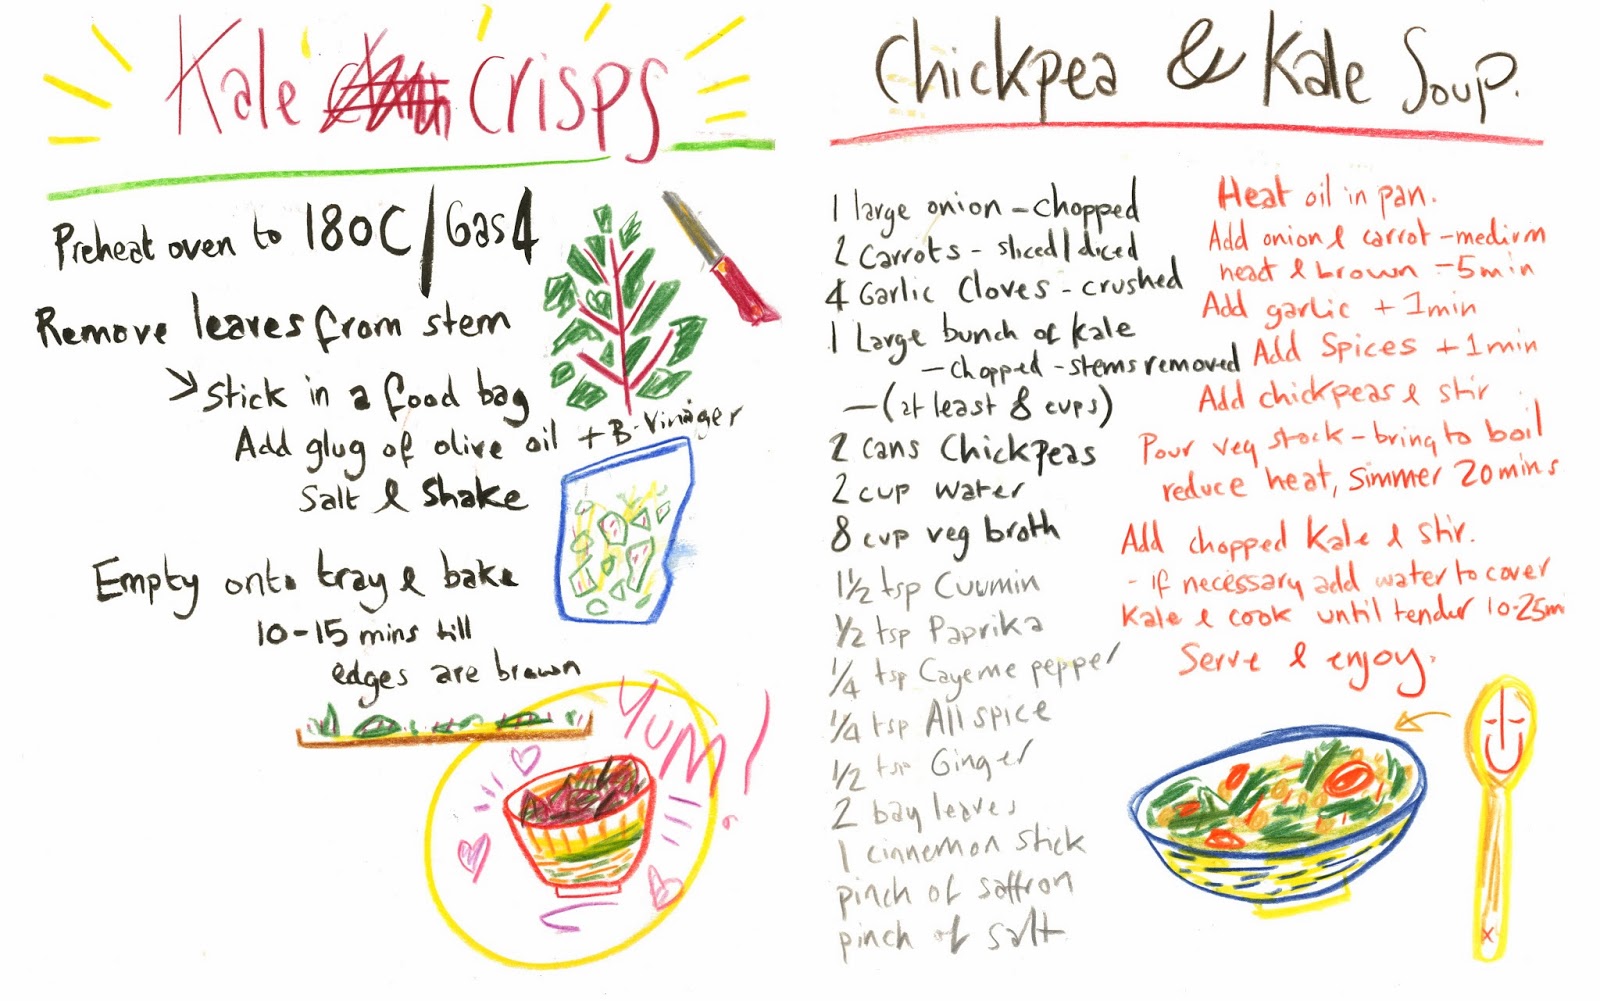 Kale Crisps
Preheat oven to 180C/Gas4
Remove leaves from stem
Stick in a food bag
Add glug of olive oil + B-Vinager
Salt & Shake
Empty onto tray & bake
10-15 mins till
edges are brown
YUM!
Chickpea & Kale Soup.
1 large onion - chopped
2 Carrots - sliced/diced
4 Garlic Cloves - crushed
1 Large bunch of Kale
- chopped - stems removed
- (at least 8 cups)
2 cans Chickpeas
2 cup water
8 cup veg broth
1½ tsp Cuumin
½ tsp Paprika
¼ tsp Cayeme pepper
¼ tsp All spice
½ tsp Ginger
2 bay leaves
1 cinnemon stick
pinch of saffron
pinch of salt
Heat oil in pan.
Add onion & carrot - medium
heat & brown - 5min
Add garlic + 1min
Add Spices + 1min
Add chickpeas & stir
Pour veg stock - bring to boil
reduce heat, Simmer 20mins
Add chopped Kale & stir.
- if necessary add water to cover
Kale & cook until tender 10-25m
Serve & enjoy.